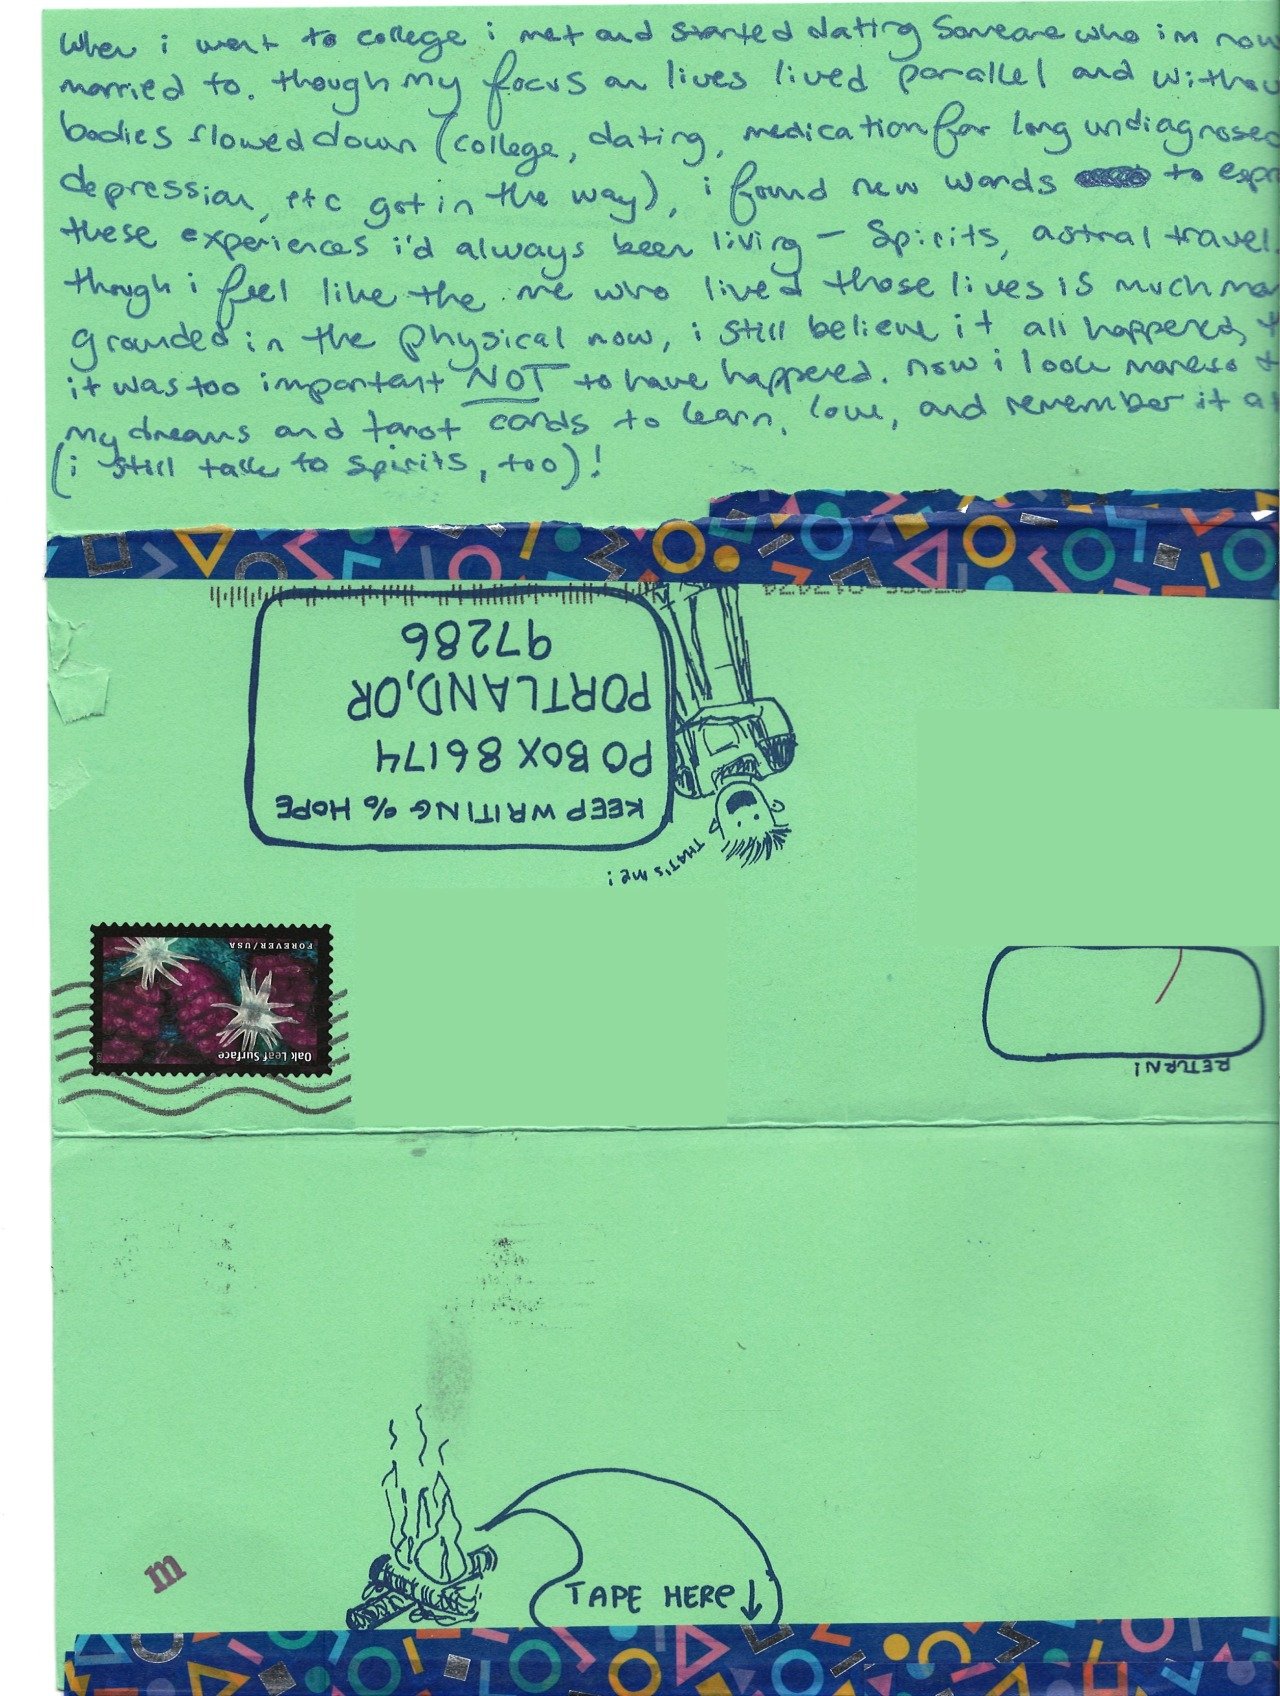 when i went to college i met and started dating someone who im now
married to. though my focus on lives lived parallel and withou
bodies slowed down (college, dating, medication for long undiagnosed
depression, etc got in the way), i found new words to expr
these experiences i'd always been living — spirits, astral travel.
though i feel like the me who lived those lives is much mor
grounded in the physical now, i still believe it all happened,
it was too important NOT to have happened. now i look more so t
my dreams and tarot cards to learn, love, and remember it al
(i still talk to spirits, too)!
RETURN!
Oak Leaf Surface
FOREVER/USA
THAT'S ME!
KEEP WRITING % HOPE
PO BOX 86174
PORTLAND, OR
97286
TAPE HERE ↓
m